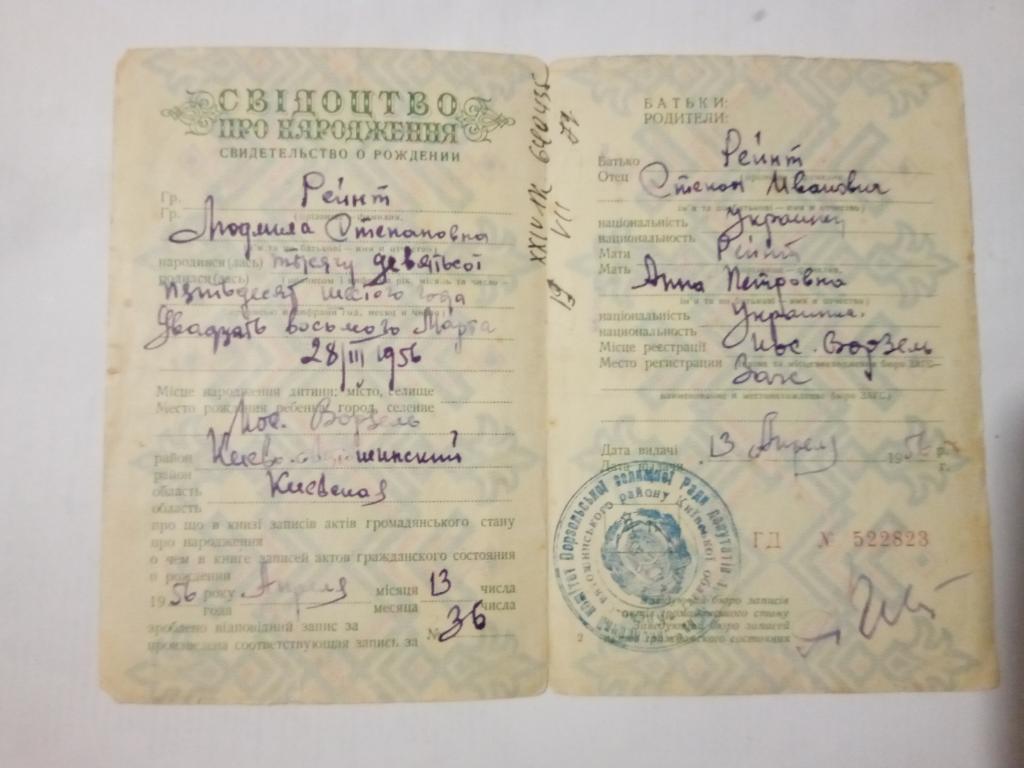 СВІДОЦТВО
ПРО НАРОДЖЕННЯ
СВИДЕТЕЛЬСТВО О РОЖДЕНИИ
Гр. Рейнт
Гр.
Людмила Степановна
народився(лась) тысячу девятьсот
родился(лась)
пятьдесят шестого года
Двадцать восьмого Марта
28/III 1956
Місце народження дитини: місто, селище
Место рождения ребенка: город, селение
пос. Ворзель
район Киево
район шинский
область Киевская
область
про що в книзі записів актів громадянського стану
про народження
о чем в книге записей актов гражданского состояния
о рождении
1956 року Апреля місяця 13 числа
года месяца числа
зроблено відповідний запис за
произведена соответствующая запись за № 36
XXIV-ИК
19 VII 77
БАТЬКИ:
РОДИТЕЛИ:
Батько Рейнт
Отец Степан Иванович
(ім'я та по батькові — имя и отчество)
національність Украинец
национальность
Мати Рейнт
Мать Анна Петровна
(ім'я та по батькові — имя и отчество)
національність Украинка
национальность
Місце реєстрації пос. Ворзель
Место регистрации Загс
наименование и местонахождение бюро ЗАГС
Дата видачі 13 Апреля 1956 р.
Дата выдачи г.
ГД № 522823
Завідуючий бюро записів
актів громадянського стану
Заведующий бюро записей
актов гражданского состояния
2
Ворзельської селищної Ради депутатів
району Київської обл.